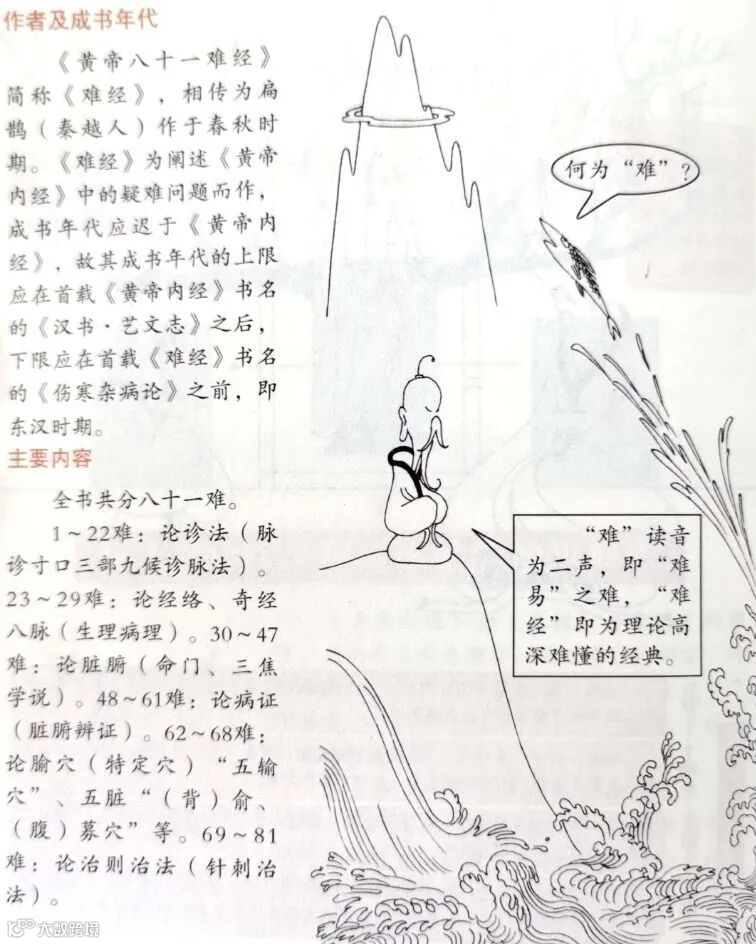 作者及成书年代
《黄帝八十一难经》
简称《难经》，相传为扁
鹊（秦越人）作于春秋时
期。《难经》为阐述《黄帝
内经》中的疑难问题而作，
成书年代应迟于《黄帝内
经》，故其成书年代的上限
应在首载《黄帝内经》书名
的《汉书·艺文志》之后，
下限应在首载《难经》书名
的《伤寒杂病论》之前，即
东汉时期。
主要内容
全书共分八十一难。
1～22难：论诊法（脉
诊寸口三部九候诊脉法）。
23～29难：论经络、奇经
八脉（生理病理）。30～47
难：论脏腑（命门、三焦
学说）。48～61难：论病证
（脏腑辨证）。62～68难：
论腧穴（特定穴）“五输
穴”、五脏“（背）俞、
（腹）募穴”等。69～81
难：论治则治法（针刺治
法）。
何为“难”？
“难”读音
为二声，即“难
易”之难，“难
经”即为理论高
深难懂的经典。
大数跨境